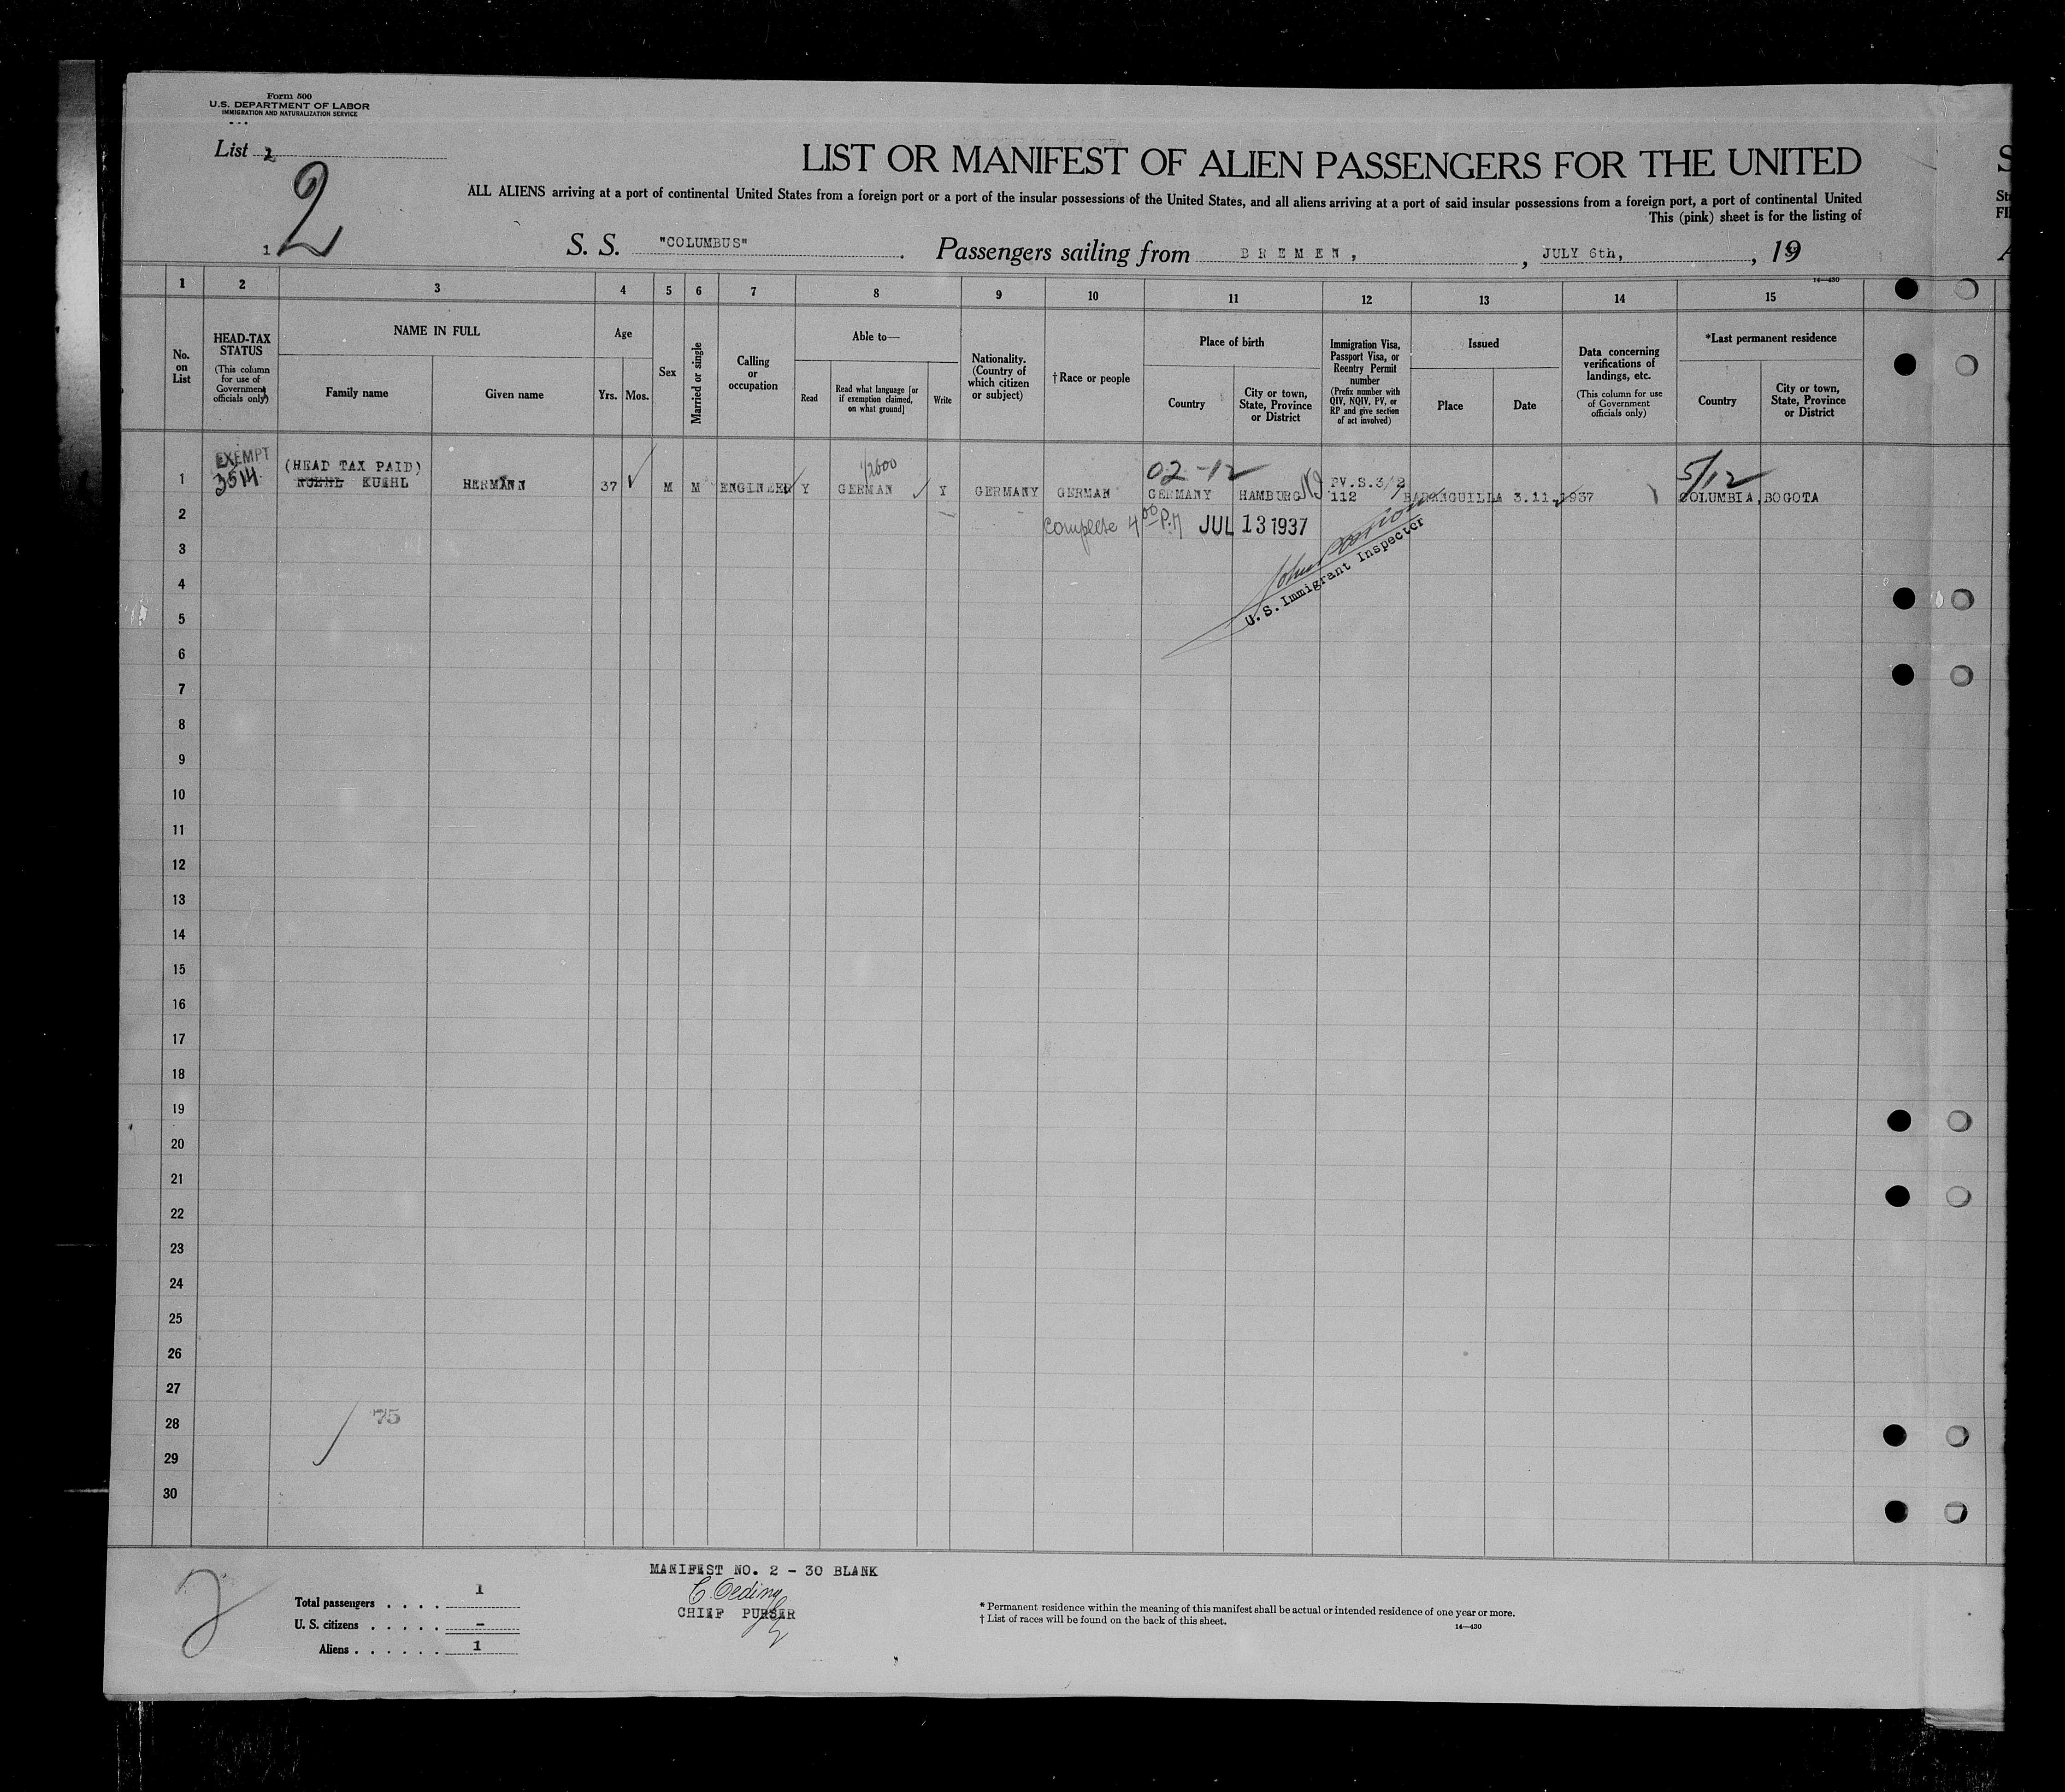 Form 500
U.S. DEPARTMENT OF LABOR
IMMIGRATION AND NATURALIZATION SERVICE
List 2
2
1
LIST OR MANIFEST OF ALIEN PASSENGERS FOR THE UNITED
ALL ALIENS arriving at a port of continental United States from a foreign port or a port of the insular possessions of the United States, and all aliens arriving at a port of said insular possessions from a foreign port, a port of continental United
This (pink) sheet is for the listing of
S. S. "COLUMBUS". Passengers sailing from BREMEN, , JULY 6th, , 19
14—430
1 2 3 4 5 6 7 8 9 10 11 12 13 14 15
No. on List
HEAD-TAX STATUS
(This column for use of Government officials only)
NAME IN FULL
Family name
Given name
Age
Yrs. Mos.
Sex
Married or single
Calling or occupation
Able to—
Read
Read what language [or if exemption claimed, on what ground]
Write
Nationality. (Country of which citizen or subject)
†Race or people
Place of birth
Country
City or town, State, Province or District
Immigration Visa, Passport Visa, or Reentry Permit number
(Prefix number with QIV, NQIV, PV, or RP and give section of act involved)
Issued
Place
Date
Data concerning verifications of landings, etc.
(This column for use of Government officials only)
*Last permanent residence
Country
City or town, State, Province or District
EXEMPT
3514
(HEAD TAX PAID)
02-12
5/12
PV.S.3/2
1 KUEHL HERMANN 37 M M ENGINEER Y GERMAN Y GERMANY GERMAN GERMANY HAMBURG 112 BARANGUILLA 3.11.1937 COLUMBIA, BOGOTA
2
complete 4 00 P.M JUL 13 1937
U.S. Immigrant Inspector
3
4
5
6
7
8
9
10
11
12
13
14
15
16
17
18
19
20
21
22
23
24
25
26
27
28
75
29
30
MANIFEST NO. 2 - 30 BLANK
CHIEF PURSER
2
Total passengers . . . . 1
U. S. citizens . . . . . -
Aliens . . . . . . 1
* Permanent residence within the meaning of this manifest shall be actual or intended residence of one year or more.
† List of races will be found on the back of this sheet.
14—430